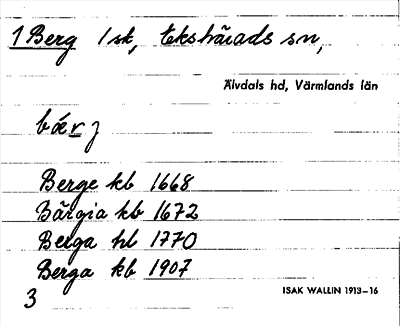 1 Berg 1 sk, Ekshärads sn,
Älvdals hd, Värmlands län
bærj
Berge kb 1668
Bärgia kb 1672
Berga hl 1770
Berga kb 1907
3
ISAK WALLIN 1913–16